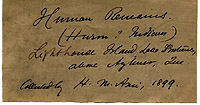 Human Remains.
(Huron? Indians)
Lighthouse Island Lac Deschênes,
above Aylmer, Que
Collected by H. M. Ami, 1899.